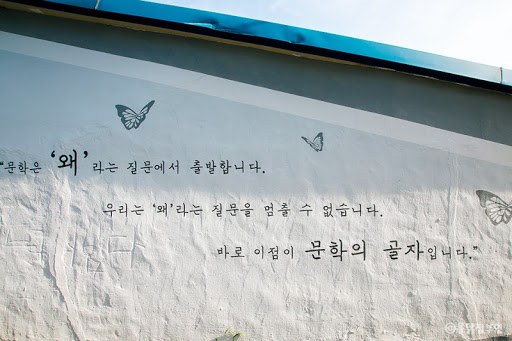 “문학은 ‘왜’라는 질문에서 출발합니다.
우리는 ‘왜’라는 질문을 멈출 수 없습니다.
바로 이점이 문학의 골자입니다.”